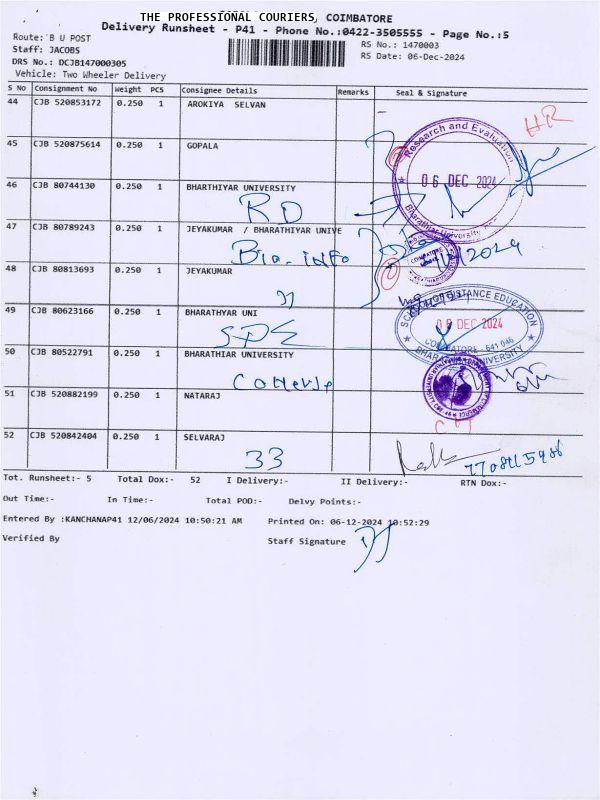 THE PROFESSIONAL COURIERS, COIMBATORE
Delivery Runsheet - P41 - Phone No.:0422-3505555 - Page No.:5
Route: B U POST
RS No.: 1470003
Staff: JACOBS
RS Date: 06-Dec-2024
DRS No.: DCJB147000305
Vehicle: Two Wheeler Delivery
S No Consignment No Weight PCS Consignee Details Remarks Seal & Signature
44 CJB 520853172 0.250 1 AROKIYA SELVAN
HR
45 CJB 520875614 0.250 1 GOPALA
Research and Evaluation
06 DEC 2024
Bharathiar University
46 CJB 80744130 0.250 1 BHARTHIYAR UNIVERSITY
RD
47 CJB 80789243 0.250 1 JEYAKUMAR / BHARATHIYAR UNIVE
Bio-info
48 CJB 80813693 0.250 1 JEYAKUMAR
49 CJB 80623166 0.250 1 BHARATHYAR UNI
DISTANCE EDUCATION
DEC 2024
COIMBATORE - 641 046
BHARATHIAR UNIVERSITY
50 CJB 80522791 0.250 1 BHARATHIAR UNIVERSITY
51 CJB 520882199 0.250 1 NATARAJ
52 CJB 520842404 0.250 1 SELVARAJ
33
Tot. Runsheet:- 5 Total Dox:- 52 I Delivery:- II Delivery:- RTN Dox:-
Out Time:- In Time:- Total POD:- Delvy Points:-
Entered By :KANCHANAP41 12/06/2024 10:50:21 AM Printed On: 06-12-2024 10:52:29
Verified By Staff Signature